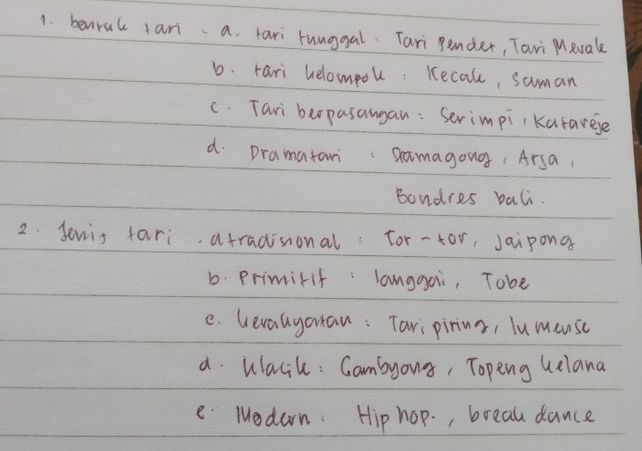 1. bentuk tari - a. tari tunggal : Tari Pendet, Tari Merak
b. tari kelompok : Kecak, Saman
c. Tari berpasangan : Serimpi, Katareje
d. Dramatari : Dramagong, Arja,
Bondres bali.
2. Jenis tari . a tradisional : Tor-tor, Jaipong
b. Primitif : langgai, Tobe
c. kerakyatan : Tari piring, lumense
d. klacik : Gambyong, Topeng kelana
e. Modern : Hip hop., break dance